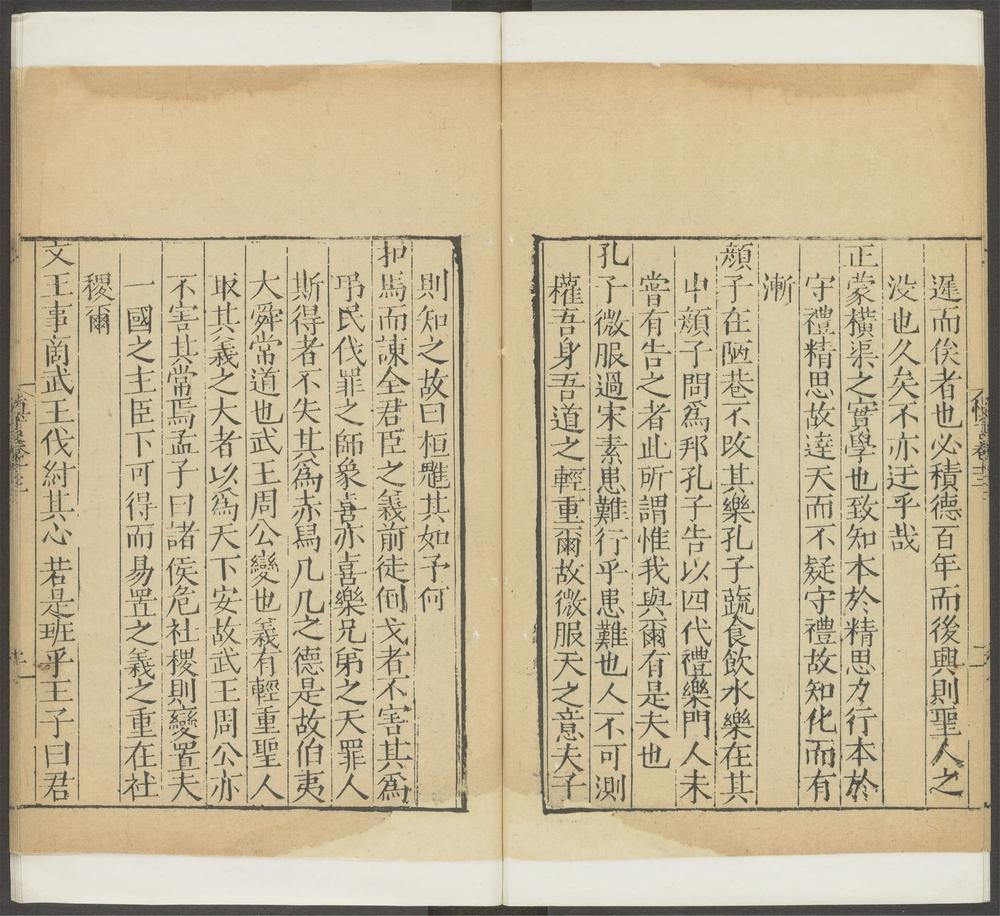 遲而俟者也必積德百年而後興則聖人之
没也久矣不亦迂乎哉
正蒙橫渠之實學也致知本於精思力行本於
守禮精思故達天而不疑守禮故知化而有
漸
顏子在陋巷不改其樂孔子蔬食飲水樂在其
中顏子問爲邦孔子告以四代禮樂門人未
嘗有告之者此所謂惟我與爾有是夫也
孔子微服過宋素患難行乎患難也人不可測
權吾身吾道之輕重爾故微服天之意夫子
則知之故曰桓魋其如予何
扣馬而諫全君臣之義前徒倒戈者不害其爲
弔民伐罪之師象喜亦喜樂兄弟之天罪人
斯得者不失其爲赤舄几几之德是故伯夷
大舜常道也武王周公變也義有輕重聖人
取其義之大者以爲天下安故武王周公亦
不害其常焉孟子曰諸侯危社稷則變置夫
一國之主臣下可得而易置之義之重在社
稷爾
文王事商武王伐紂其心若是班乎王子曰君